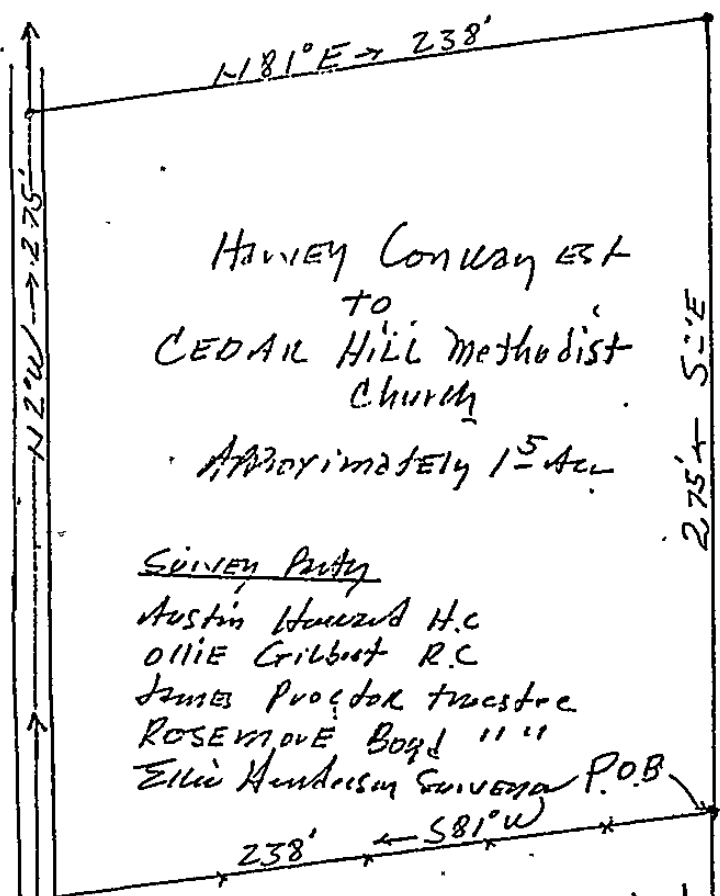 N81°E → 238'
N2°W → 275'
275' ← S2°E
Harvey Conway Est
to
CEDAR HILL Methodist
Church
Approximately 1 5 Acr
Survey Party
Austin Howard H.C
Ollie Gilbert R.C
James Proctor trustee
Boyd " "
Ellie Henderson Surveyor
P.O.B
238' ← S81°W